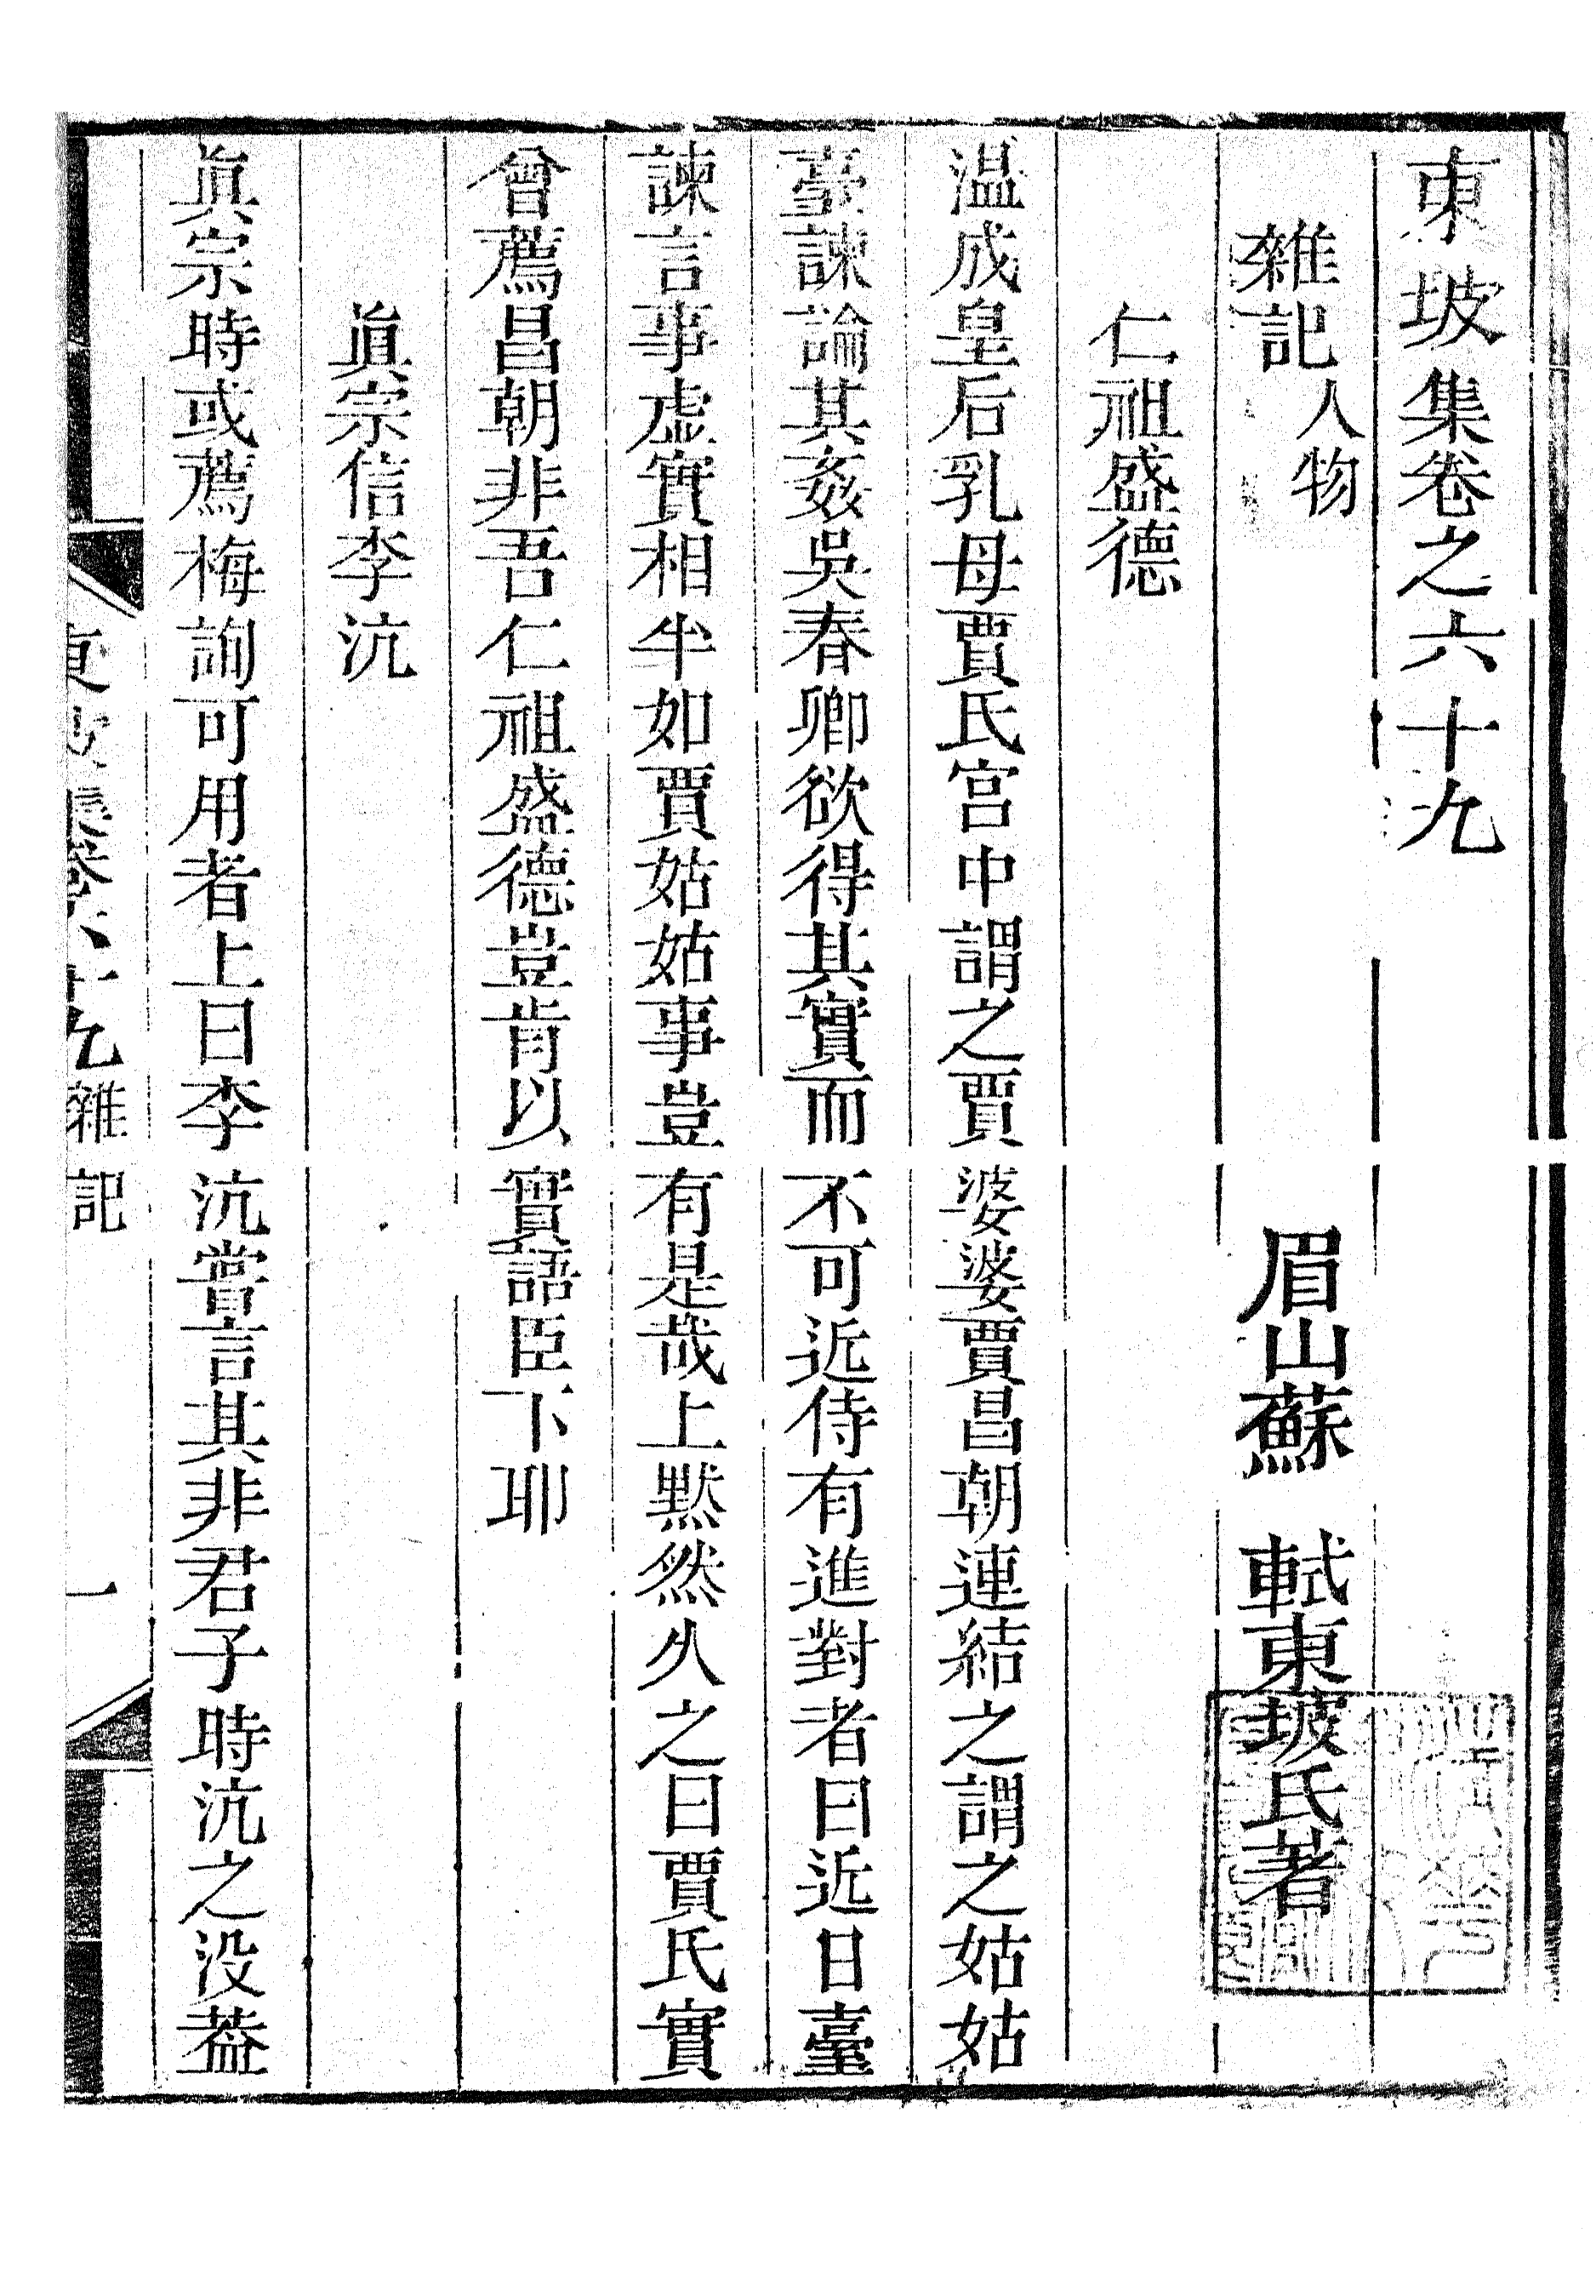 東坡集卷之六十九
雜記人物
眉山蘇 軾東坡氏著
仁祖盛德
温成皇后乳母賈氏宫中謂之賈婆婆賈昌朝連結之謂之姑姑
臺諫論其姦吳春卿欲得其實而不可近侍有進對者曰近日臺
諫言事虛實相半如賈姑姑事豈有是哉上默然久之曰賈氏實
曾薦昌朝非吾仁祖盛德豈肯以實語臣下耶
眞宗信李沆
眞宗時或薦梅詢可用者上曰李沆嘗言其非君子時沆之没葢
卷六十九雜記
一